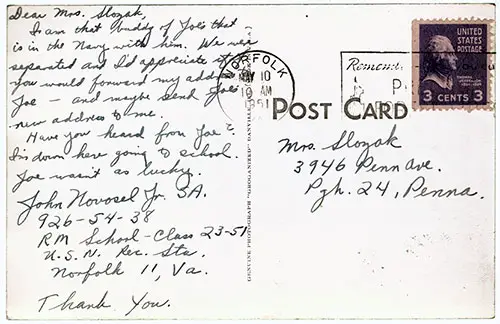 Dear Mrs. Slozak,
I am that buddy of Joe's that
is in the Navy with him. We were
separated and I'd appreciate it
you would forward my address
Joe – and maybe send Joe's
new address to me.
Have you heard from Joe?
I'm down here going to school.
Joe wasn't as lucky.
John Novosel Jr. SA.
926-54-38
RM School-Class 23-51
U.S.N. Rec. Sta.
Norfolk 11, Va.
Thank You.
NORFOLK
10
10 AM
1951
Remem
UNITED
STATES
POSTAGE
3 CENTS 3
POST CARD
Mrs. Slozak
3946 Penn Ave.
Pgh. 24, Penna.
GENUINE PHOTOGRAPH